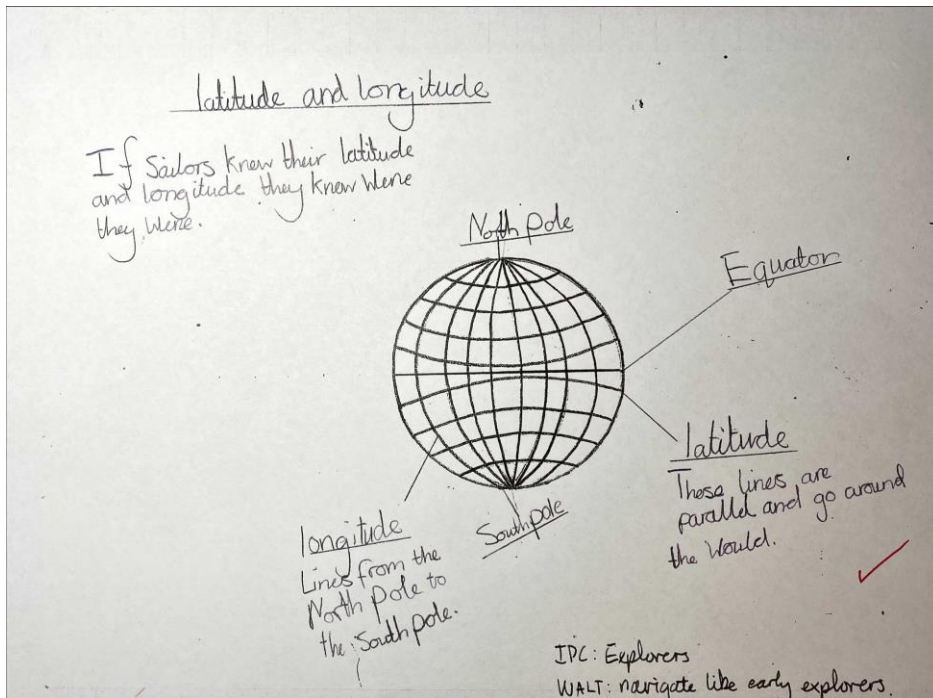 latitude and longitude
If Sailors knew their latitude
and longitude they knew Were
they Were.
North pole
Equator
latitude
These lines are
parallel and go around
the Would.
South pole
longitude
Lines from the
North pole to
the South pole.
IPC: Explorers
WALT: navigate like early explorers.